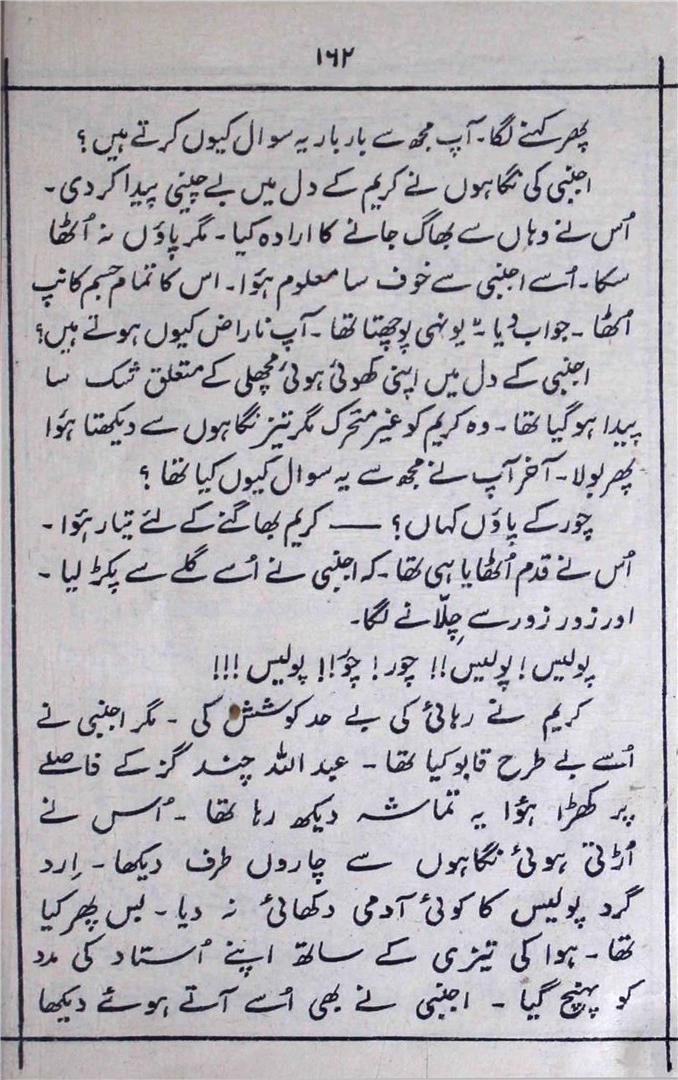 ۱۶۲
پھر کہنے لگا۔ آپ مجھ سے بار بار یہ سوال کیوں کرتے ہیں؟
اجنبی کی نگاہوں نے کریم کے دل میں بے چینی پیدا کر دی۔
اُس نے وہاں سے بھاگ جانے کا ارادہ کیا۔ مگر پاؤں نہ اُٹھا
سکا۔ اُسے اجنبی سے خوف سا معلوم ہؤا۔ اس کا تمام جسم کانپ
اُٹھا۔ جواب دیا۔ یونہی پوچھتا تھا۔ آپ ناراض کیوں ہوتے ہیں؟
اجنبی کے دل میں اپنی کھوئی ہوئی مچھلی کے متعلق شک سا
پیدا ہو گیا تھا۔ وہ کریم کو غیر متحرک مگر تیز نگاہوں سے دیکھتا ہؤا
پھر بولا۔ آخر آپ نے مجھ سے یہ سوال کیوں کیا تھا؟
چور کے پاؤں کہاں؟ — کریم بھاگنے کے لئے تیار ہؤا۔
اُس نے قدم اُٹھایا ہی تھا۔ کہ اجنبی نے اُسے گلے سے پکڑ لیا۔
اور زور زور سے چِلّانے لگا۔
پولیس! پولیس!! چور! چور!! پولیس!!!
کریم نے رہائی کی بے حد کوشش کی۔ مگر اجنبی نے
اُسے بے طرح قابو کیا تھا۔ عبداللہ چند گز کے فاصلے
پر کھڑا ہؤا یہ تماشہ دیکھ رہا تھا۔ اُس نے
اُڑتی ہوئی نگاہوں سے چاروں طرف دیکھا۔ اِرد
گرد پولیس کا کوئی آدمی دکھائی نہ دیا۔ بس پھر کیا
تھا۔ ہوا کی تیزی کے ساتھ اپنے اُستاد کی مدد
کو پہنچ گیا۔ اجنبی نے بھی اُسے آتے ہوئے دیکھا